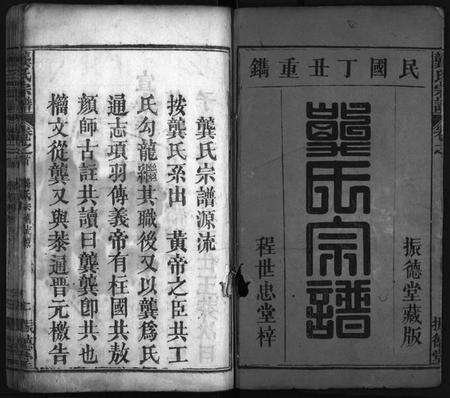 民國丁丑重鐫
龔氏宗譜
振德堂藏版
程世忠堂梓
龔氏宗譜
振德堂
龔氏宗譜源流
按龔氏系出　黃帝之臣共工
氏勾龍繼其職後又以龔為氏
通志項羽傳義帝有柱國共敖
顏師古註共讀曰龔龔卽共也
檣文從龔又與恭通晉元檄告
氏宗譜